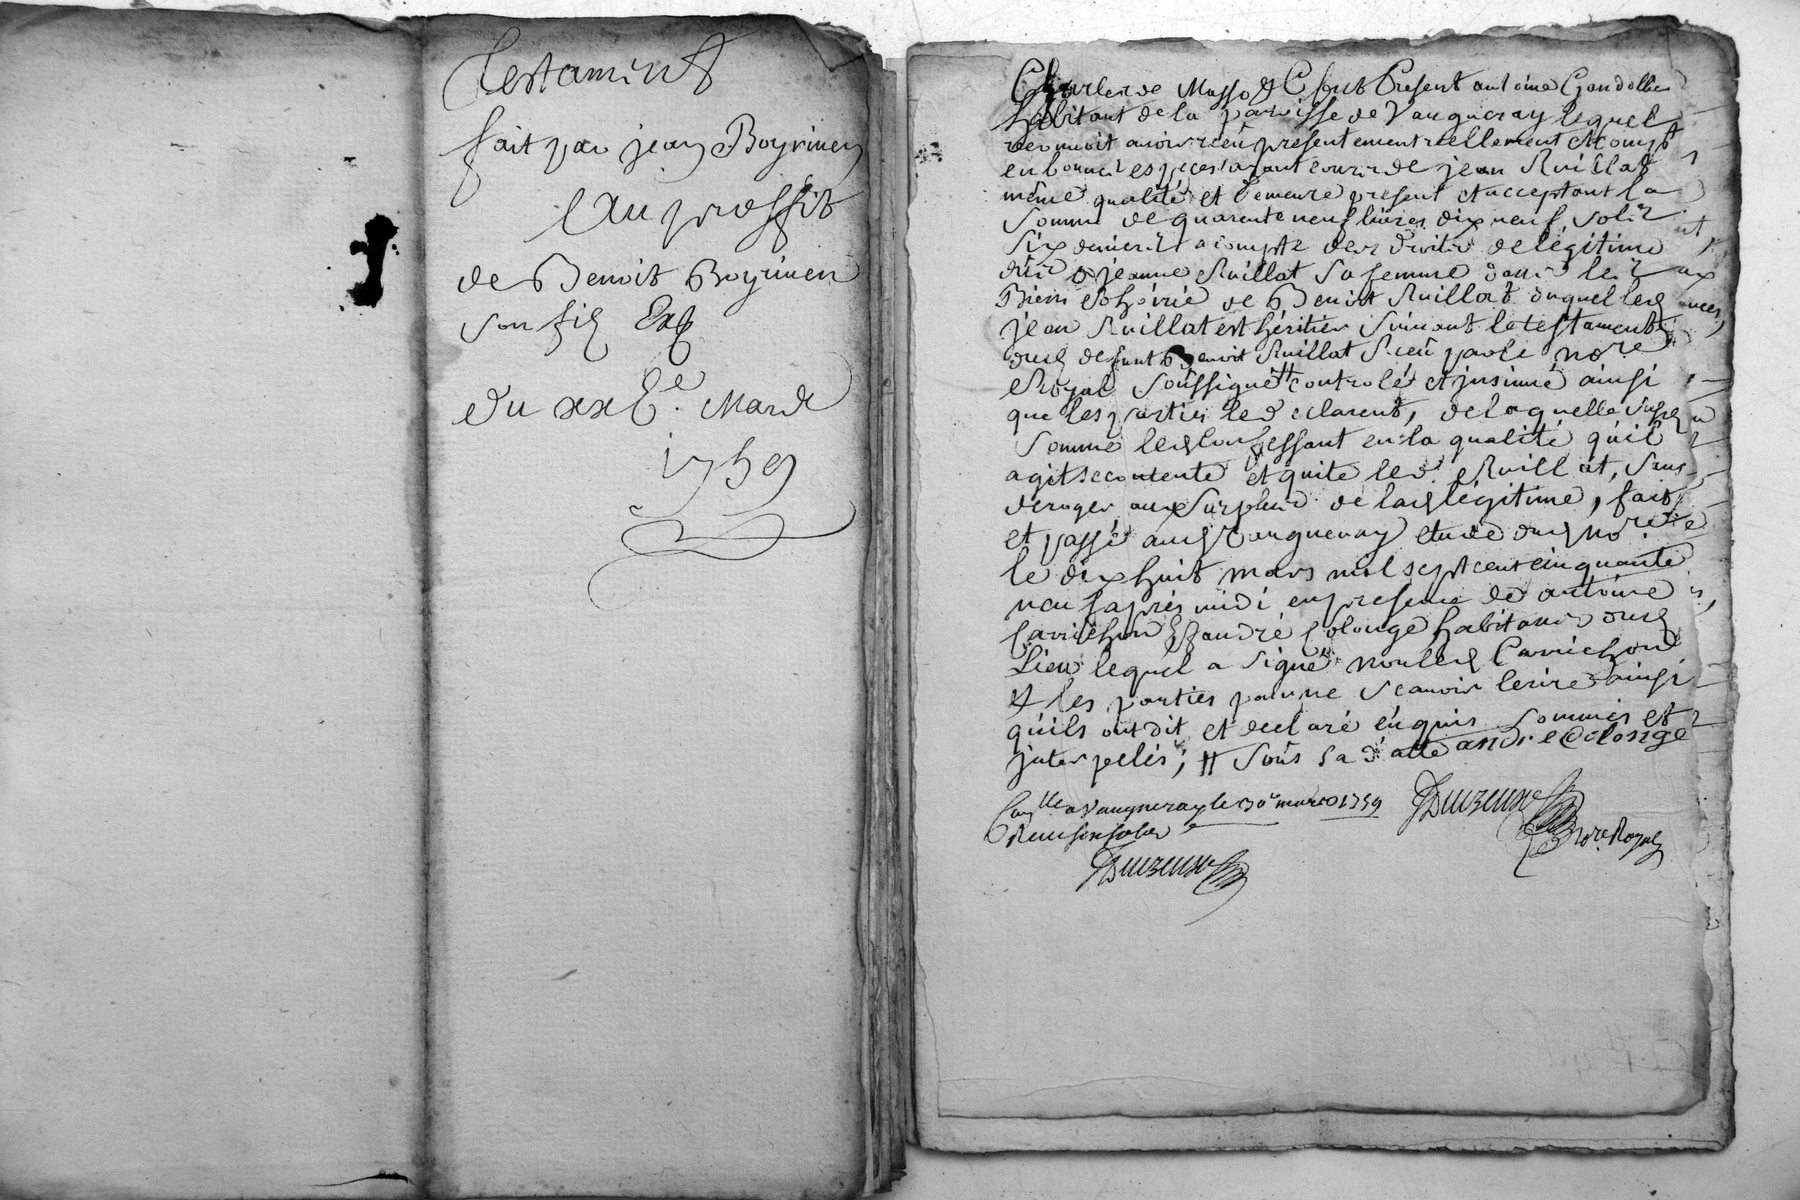 Testament
fait par jean Boyriven
Au proffit
de Benoit Boyriven
son fils
Du xxe. Mars
1759
habitant de la paroisse de Vaugneray lequel
reconnoit avoir réçu présentement réellement et compt
en bonnes espèces ayant cours de jean Ruillat
même qualité et demeure présent et acceptant la
Somme de quarente neuf livres dix neuf sols
six deniers a compte des droits de légitime
de jeanne Ruillat sa femme dans les
Biens et hoirie de Benoit Ruillat duquel led
jean Ruillat est héritier suivant le testament
dud deffunt Benoit Ruillat Réçu par le nore
Royal Soussigné # controlé et jnsinué ainsi
que les parties le déclarent, de laquelle susd
Somme led confessant en la qualité qu'il
agit se contente et quite led. Ruillat, sans
deroger aux surplus de lad légitime, fait
et passé aud Vaugneray etude dud nore
le dix huit mars mil sept cent cinquante
neuf après midi en présence de antoine
Carrichon & andré Colonge habitans dud
Lieu lequel a signé non led Carrichon
& les parties pour ne scavoir lecrire ainsi
qu'ils ont dit et déclaré énquis sommés et
jnterpellés; # sous sa datte andre Colonge
a Vaugneray le 30e mars 1759
nore. Royal